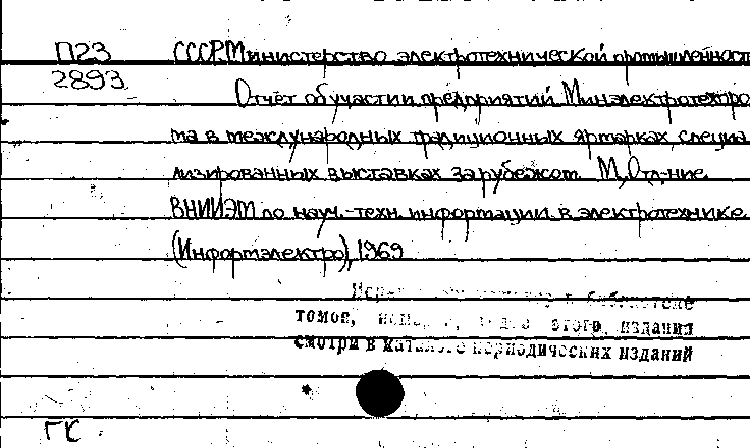 П23 СССР. Министерство электротехнической промышленност
2893
Отчёт об участии предприятий Минэлектротехпро
ма в международных традиционных ярмарках, специа
лизированных выставках за рубежом. М., Отд-ние
ВНИИЭМ по науч.-техн. информации в электротехнике
(Информэлектро), 1969
библиотеке
томов, этого издания
смотри в каталоге периодических изданий
ГК